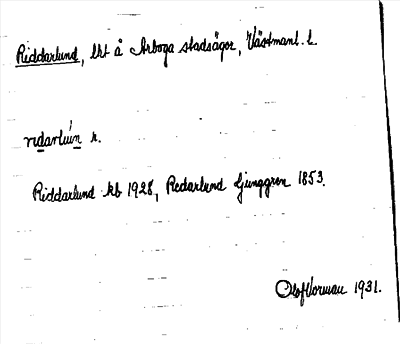 Riddarlund, lht å Arboga stadsägor, Västmanl. l.
rıdarluń n.
Riddarlund kb 1928, Redarlund Ljunggren 1853.
Olof Vorman 1931.